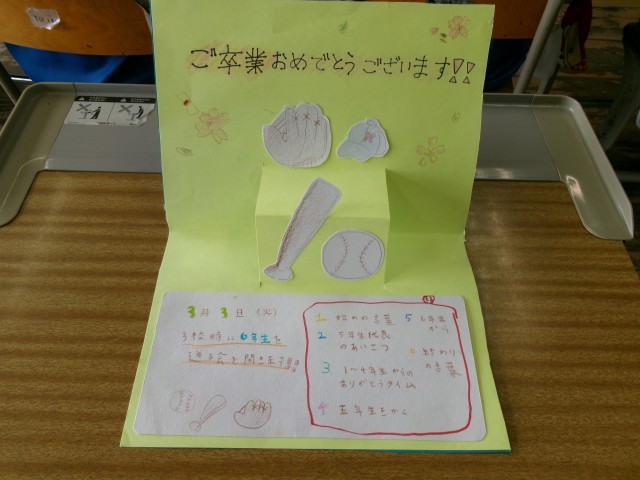 ご卒業おめでとうございます!!
3月3日(火)
3校時に6年生を
送る会を開きます!!
1 始めの言葉
2 5年生代表
のあいさつ
3 1〜4年生からの
ありがとうタイム
4 五年生をから
5 6年生
から
6 終わり
の言葉